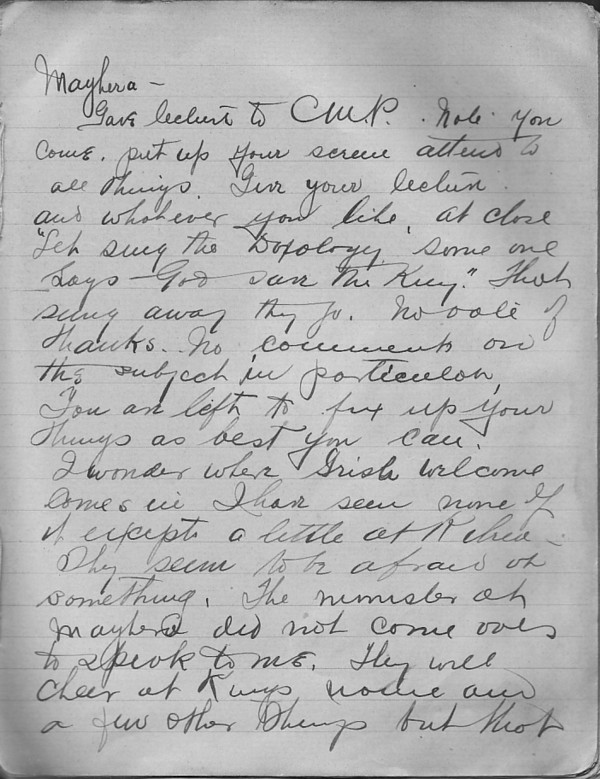 Maghera –
Gave lecture to C.M.P. . Note. You
come, put up your screen attend to
all things. Give your lecture
and whatever you like, at close
"Let sing the Doxology, some one
says – God save the King." That
sung away they go. No vote of
thanks. No comments on
the subject in particular,
You are left to fix up your
things as best you can.
I wonder where Irish welcome
comes in I have seen none of
it except a little at –
They seem to be afraid of
something. The minister at
Maghera did not come over
to speak to me. They will
cheer at Kings name and
a few other things but that